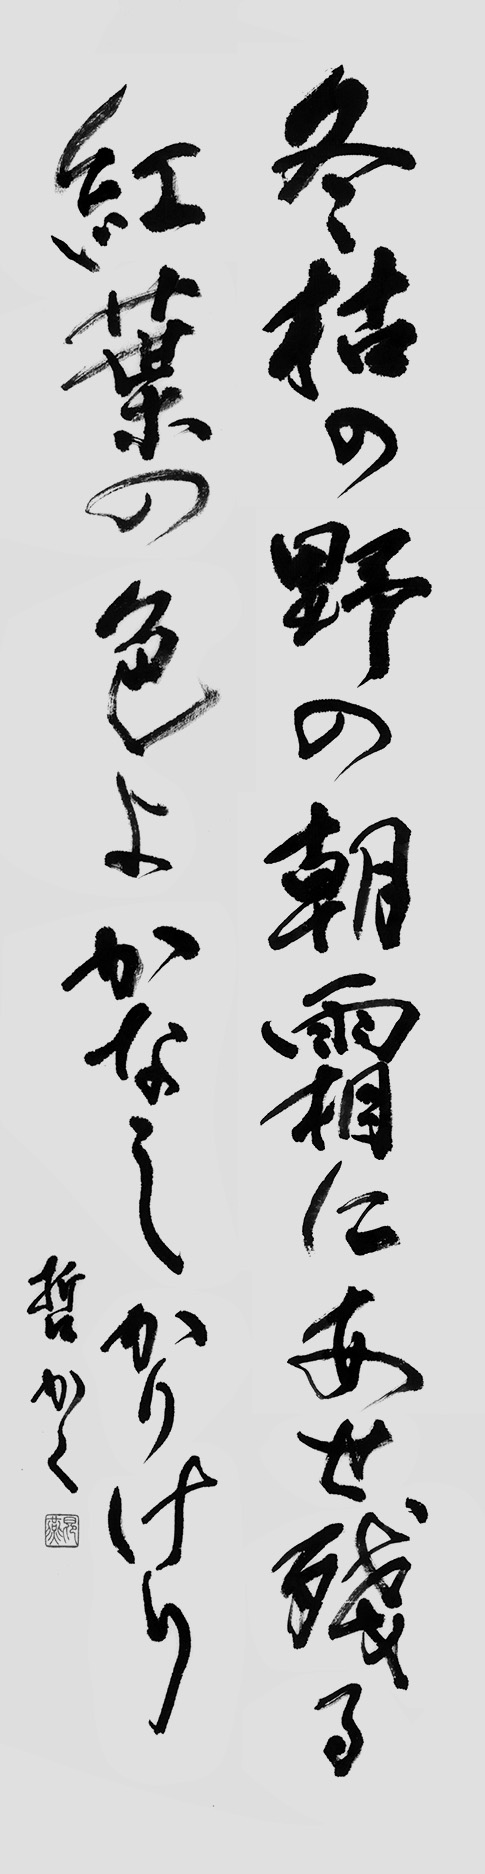 冬枯の野の朝霜にあせ残る
紅葉の色よかなしかりけり
哲かく